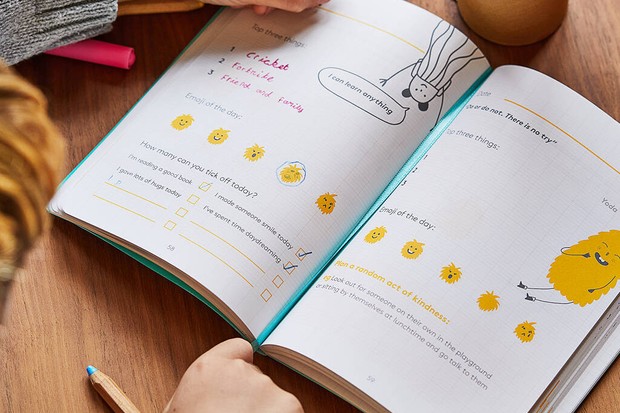 Top three things:
1 Cricket
2 Fortnite
3 Friend and family
I can learn anything
Emoji of the day:
How many can you tick off today?
I'm reading a good book
I made someone smile today
I gave lots of hugs today
I've spent time daydreaming
58
Do or do not. There is no try"
Yoda
Top three things:
1
2
3
Emoji of the day:
Plan a random act of kindness:
eg Look out for someone on their own in the playground
or sitting by themselves at lunchtime and go talk to them
59